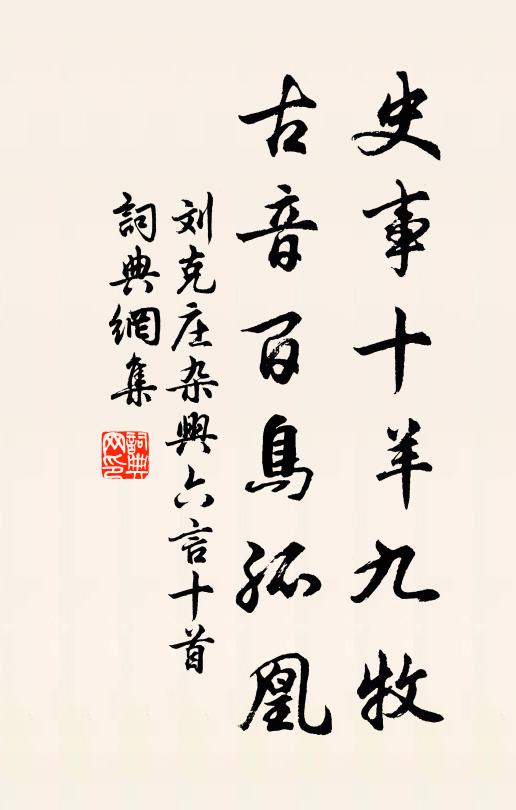 史事十羊九牧
古音百鳥孤凰
刘克庄杂興六言十首
詞典網集
詞典网印